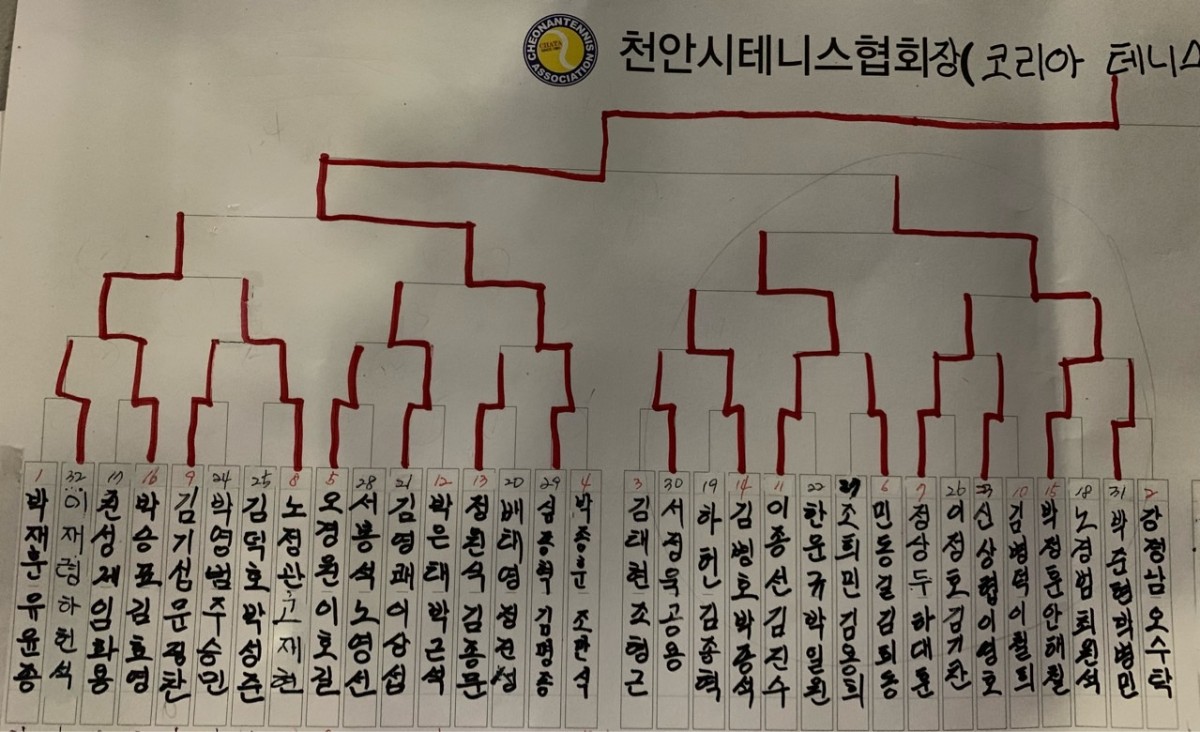 CHEONANTENNIS ASSOCIATION
CHATA
천안시테니스협회장( 코리아 테니스
1 32 17 16 9 24 25 8 5 28 21 12 13 20 29 4 3 30 19 14 11 22 27 6 7 26 23 10 15 18 31 2
박재훈 유윤종
이재령 하헌석
성제 임화용
박승표 김효영
김기섭 문정찬
박영범 주승민
김덕호 박성준
노정관 고재현
오경원 이호길
서봉석 노영선
김영래 이상섭
박은태 박근석
정원석 김종문
배태영 정진성
심종혁 김명종
박종훈 조한석
김태현 조형근
서정욱 공용
하헌 김종혁
김병호 박종석
이종선 김진수
한문규 박일원
조희민 김용희
민동길 김퇴동
정상두 하대훈
이정호 김기찬
신상협 이영호
김병덕 이철희
박정훈 안해철
노경범 최원석
박준현 박병민
강정남 오수탁